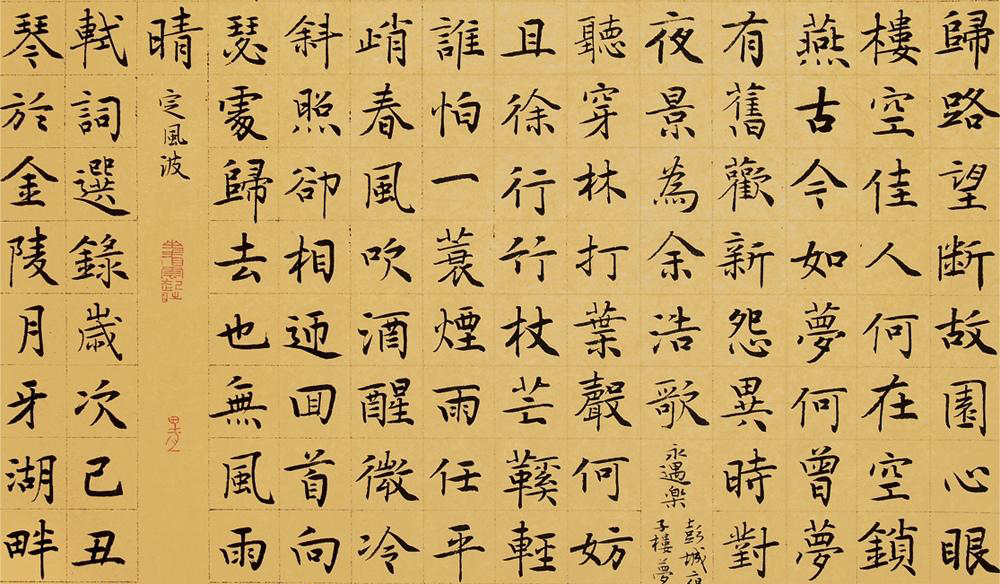 歸路望断故園心眼
樓空佳人何在空鎖
燕古今如夢何曾夢
有舊歡新怨異時對
夜景為余浩歌
永遇楽
彭城宿
子樓夢
聽穿林打葉聲何妨
且徐行竹杖芒鞵輕
誰怕一蓑煙雨任平
峭春風吹酒醒微冷
斜照卻相迎囬首向
瑟處歸去也無風雨
晴
定風波
軾詞選錄歲次己丑
琴於金陵月牙湖畔